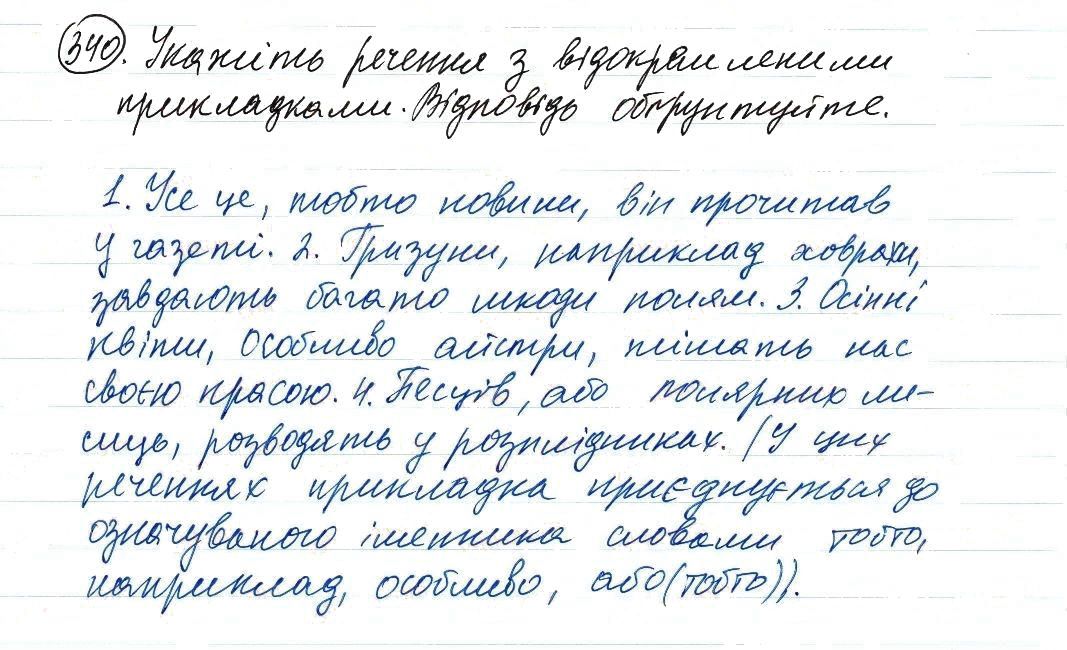 340. Укажіть речення з відокремленими
прикладками. Відповідь обґрунтуйте.
1. Усе це, тобто новини, він прочитав
у газеті. 2. Гризуни, наприклад ховрахи,
завдають багато шкоди полям. 3. Осінні
квіти, особливо айстри, тішать нас
своєю красою. 4. Песців, або полярних ли-
сиць, розводять у розплідниках. (У цих
реченнях прикладка приєднується до
означуваного іменника словами тобто,
наприклад, особливо, або (тобто)).